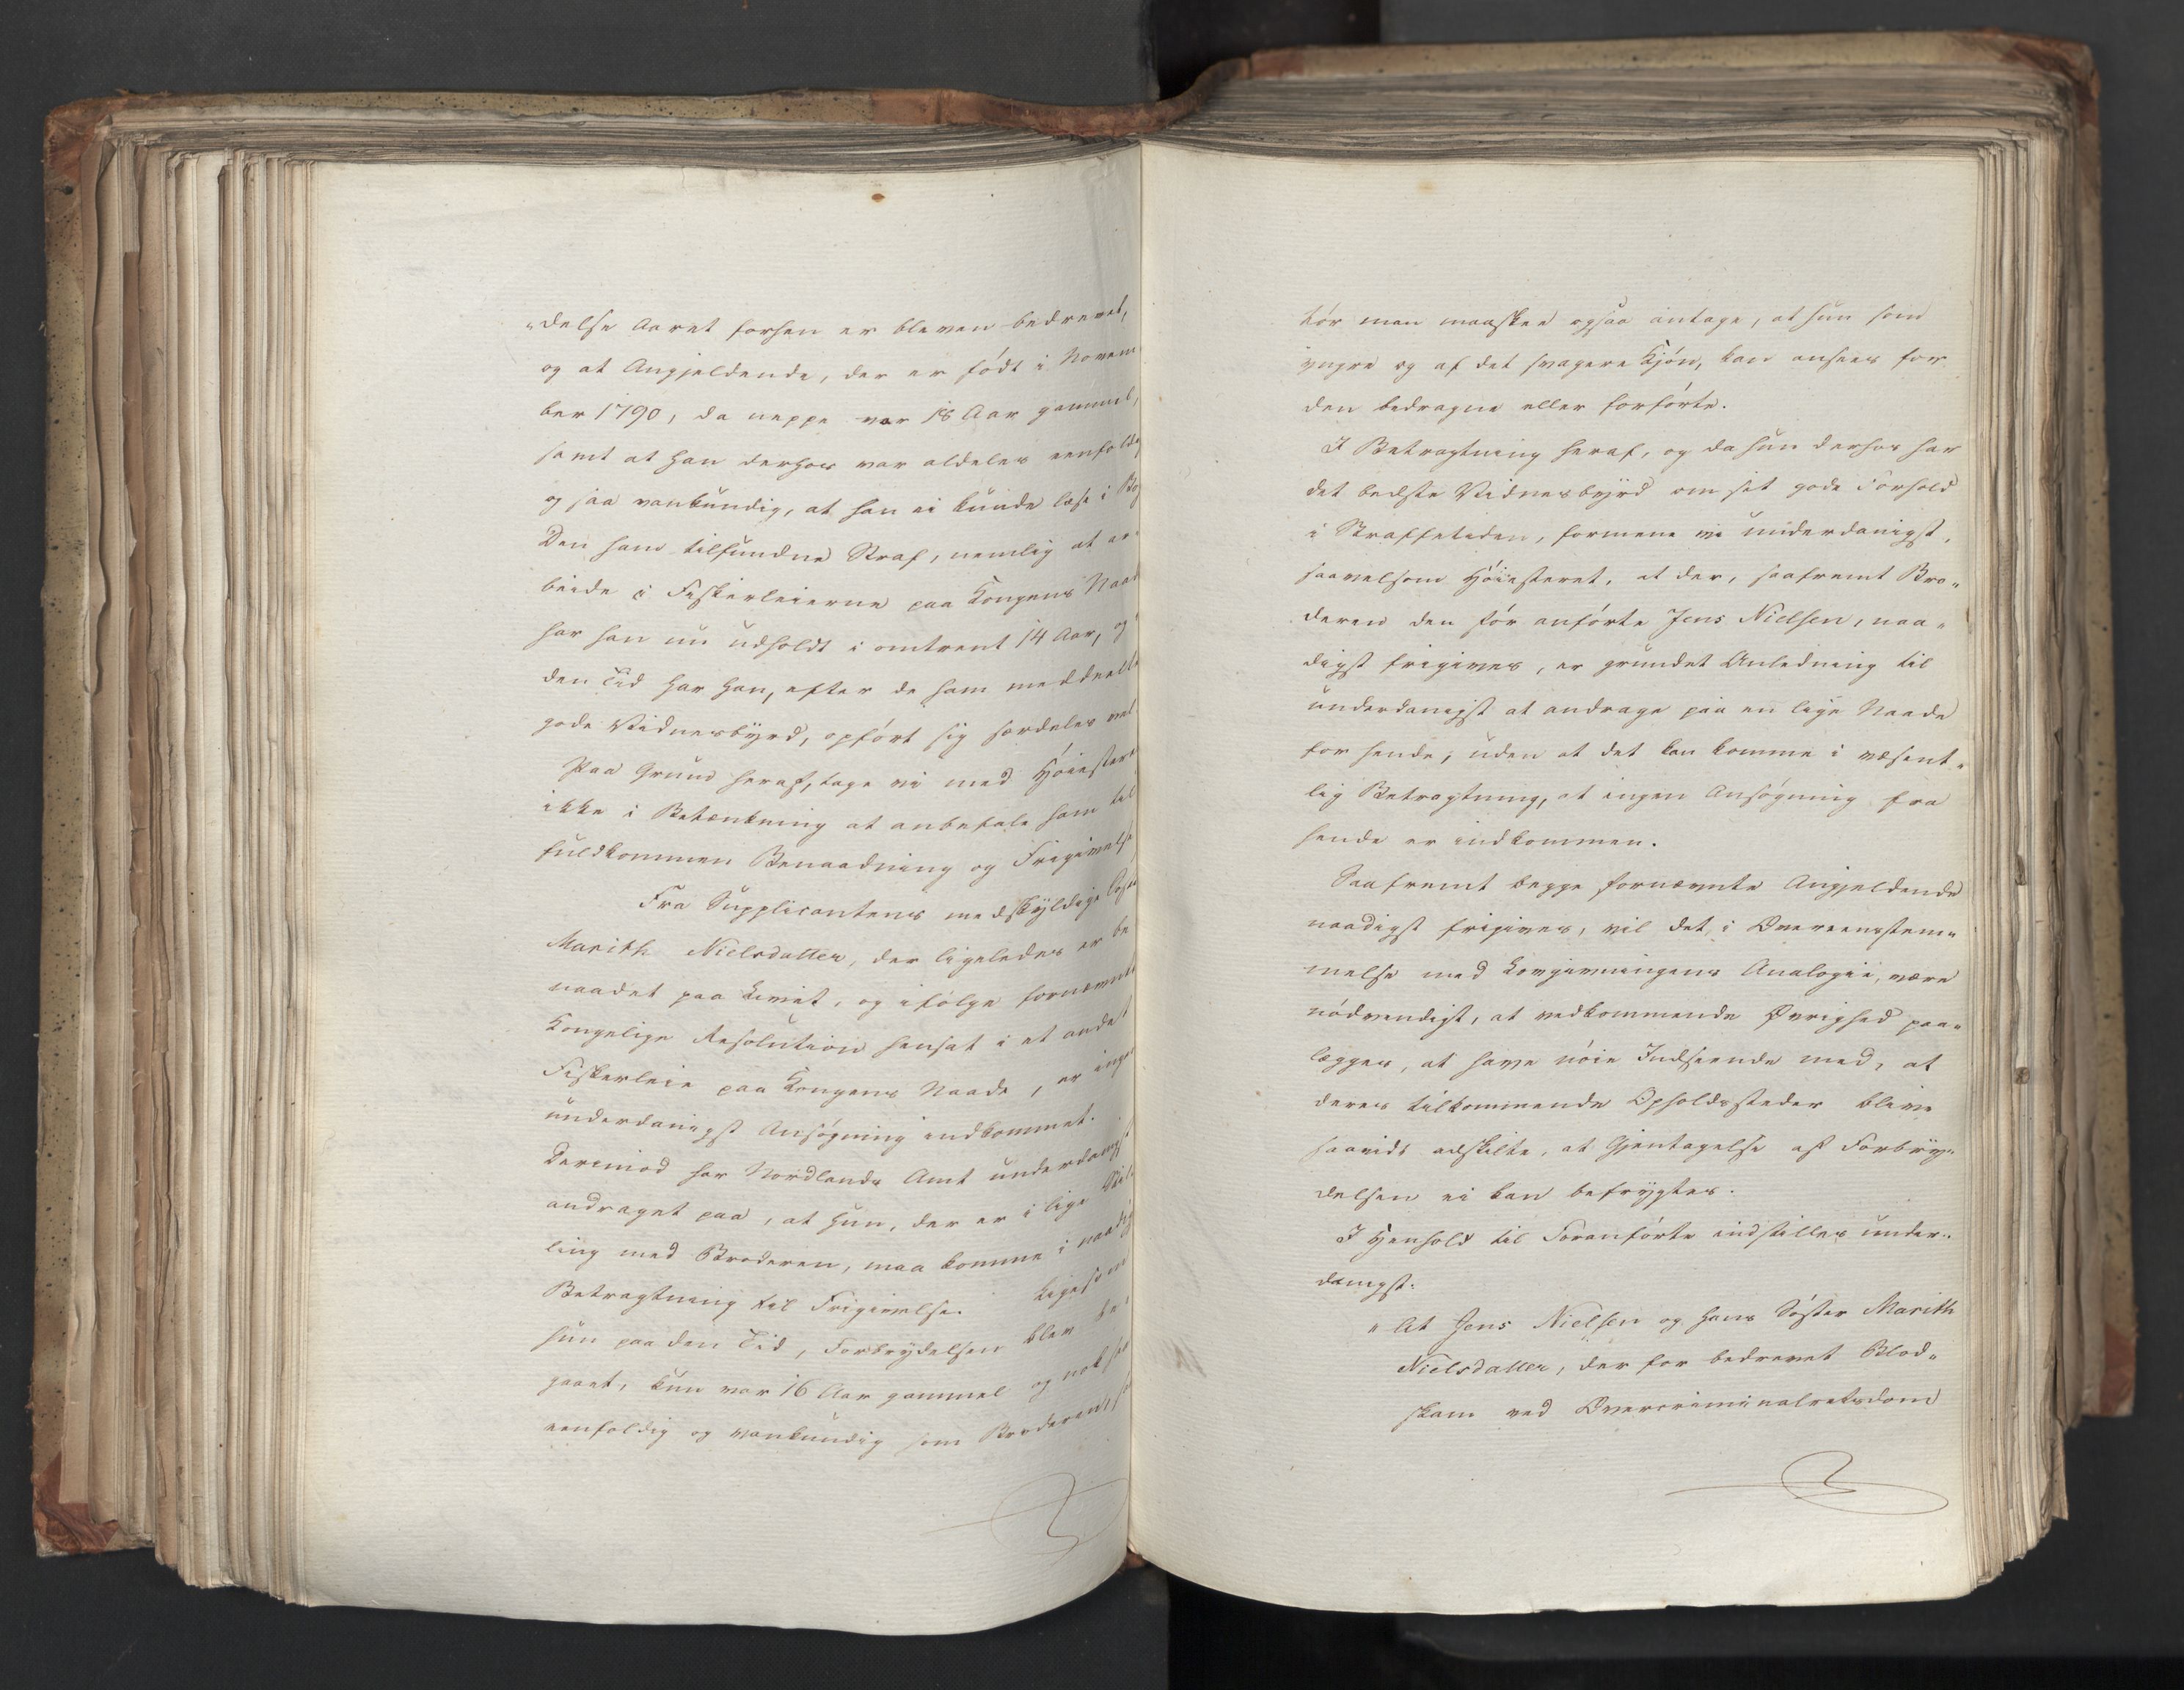 „delse Aaret forhen er bleven bedrevet,
og at Angjeldende, der er födt i Novem
ber 1790, da neppe var 18 Aar gammel,
samt at han derhos var aldeles eenfoldig
og saa vankundig, at han ei kunde læse i Bog
Den ham tilfundne Straf, nemlig at ar-
beide i Fiskerleierne paa Kongens Naade
har han nu udholdt i omtrent 14 Aar, og i
den Tid har han, efter de ham meddeelte
gode Vidnesbyrd, opfört sig særdeles vel
Paa Grund heraf, tage vi med Höiesteret
ikke i Betænkning at anbefale ham til
fuldkommen Benaadning og Frigivelse
Fra Supplicantens medskyldige Søster
Marith Nielsdatter, der ligeledes er be
naadet paa Livet, og ifölge fornævnte
Kongelige Resolution hensat i et andet
Fiskerleie paa Kongens Naade, er ingen
underdanigst Ansögning indkommet.
Derimod har Nordlands Amt underdanigst
andraget paa, at hun, der er i lige Stil-
ling med Broderen, maa komme i naadig
Betragtning til Frigivelse. Ligesom
hun paa den Tid, Forbrydelsen blev be-
gaaet, kun var 16 Aar gammel og nok saa
eenfoldig og vankundig som Broderen, saa
tör man maaskee ogsaa antage, at hun som
yngre og af det svagere Kjön, kan ansees for
den bedragne eller forförte.
I Betragtning heraf, og da hun derhos har
det bedste Vidnesbyrd om sit gode Forhold
i Straffetiden, formene vi underdanigst,
saavelsom Höiesteret, at der, saafremt Bro„
deren den för anförte Jens Nielsen, naa„
digst frigives, er grundet Anledning til
underdanigst at andrage paa en lige Naade
for hende; uden at det kan komme i væsent„
lig Betragtning, at ingen Ansögning fra
hende er indkommen.
Saafremt begge fornævnte Angjeldende
naadigst frigives, vil det, i Overeensstem„
melse med Lovgivningens Analogie, være
nödvendigt, at vedkommende Øvrighed paa„
lægges, at have nöie Indseende med, at
deres tilkommende Opholdssteder blive
saavidt adskilte, at Gjentagelse af Forbry„
delsen ei kan befrygtes.
I Henhold til Foranförte indstilles under„
danigst:
„At Jens Nielsen og hans Söster Marith
Nielsdatter, der for bedrevet Blod„
skam ved Overcriminalretsdom